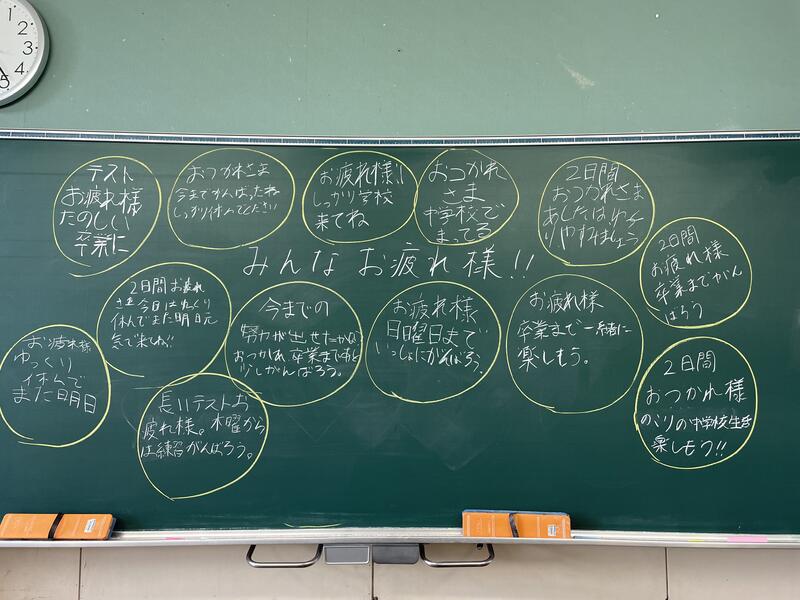 1
2
3
4
5
テスト
お疲れ様
たのしい
卒業に
おつかれさま
今までがんばったね
しっかり休んでください
お疲れ様！
しっかり学校
来てね
おつかれ
さま
中学校で
まってる
2日間
おつかれさま
あしたはゆっく
りやすみましょう
2日間
お疲れ様
卒業までがん
ばろう
みんなお疲れ様!!
2日間お疲れ
さま今日はゆっくり
休んでまた明日元
気で来てね!!
今までの
努力が出せたかな
おつかれ
卒業まで
少しがんばろう。
お疲れ様
日曜日まで
いっしょにがんばろう
お疲れ様
卒業まで一緒に
楽しもう。
2日間
おつかれ様
のこりの中学校生活
楽しもう!!
お疲れ様
ゆっくり
休んで
また明日
長いテストお
疲れ様。木曜から
は練習がんばろう。